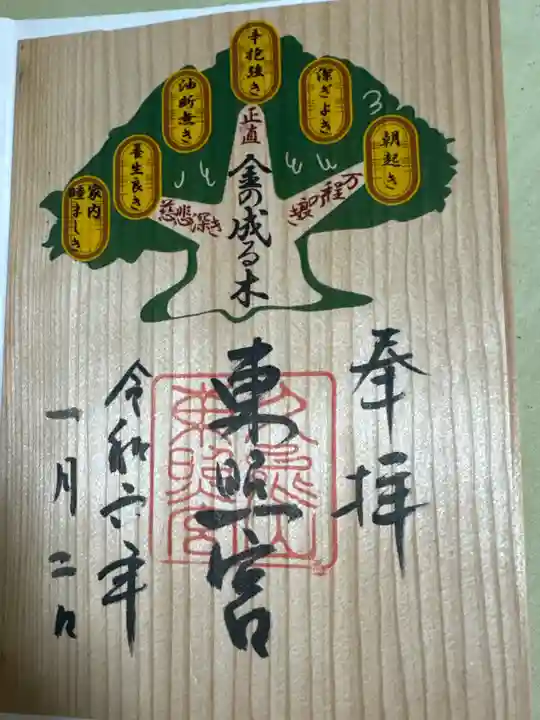 朝起き
潔ぎよき
辛抱強き
油断無き
養生良き
家内
睦ましき
万程の
正直
慈悲深き
金の成る木
奉拝
東照宮
令和六年
一月二日